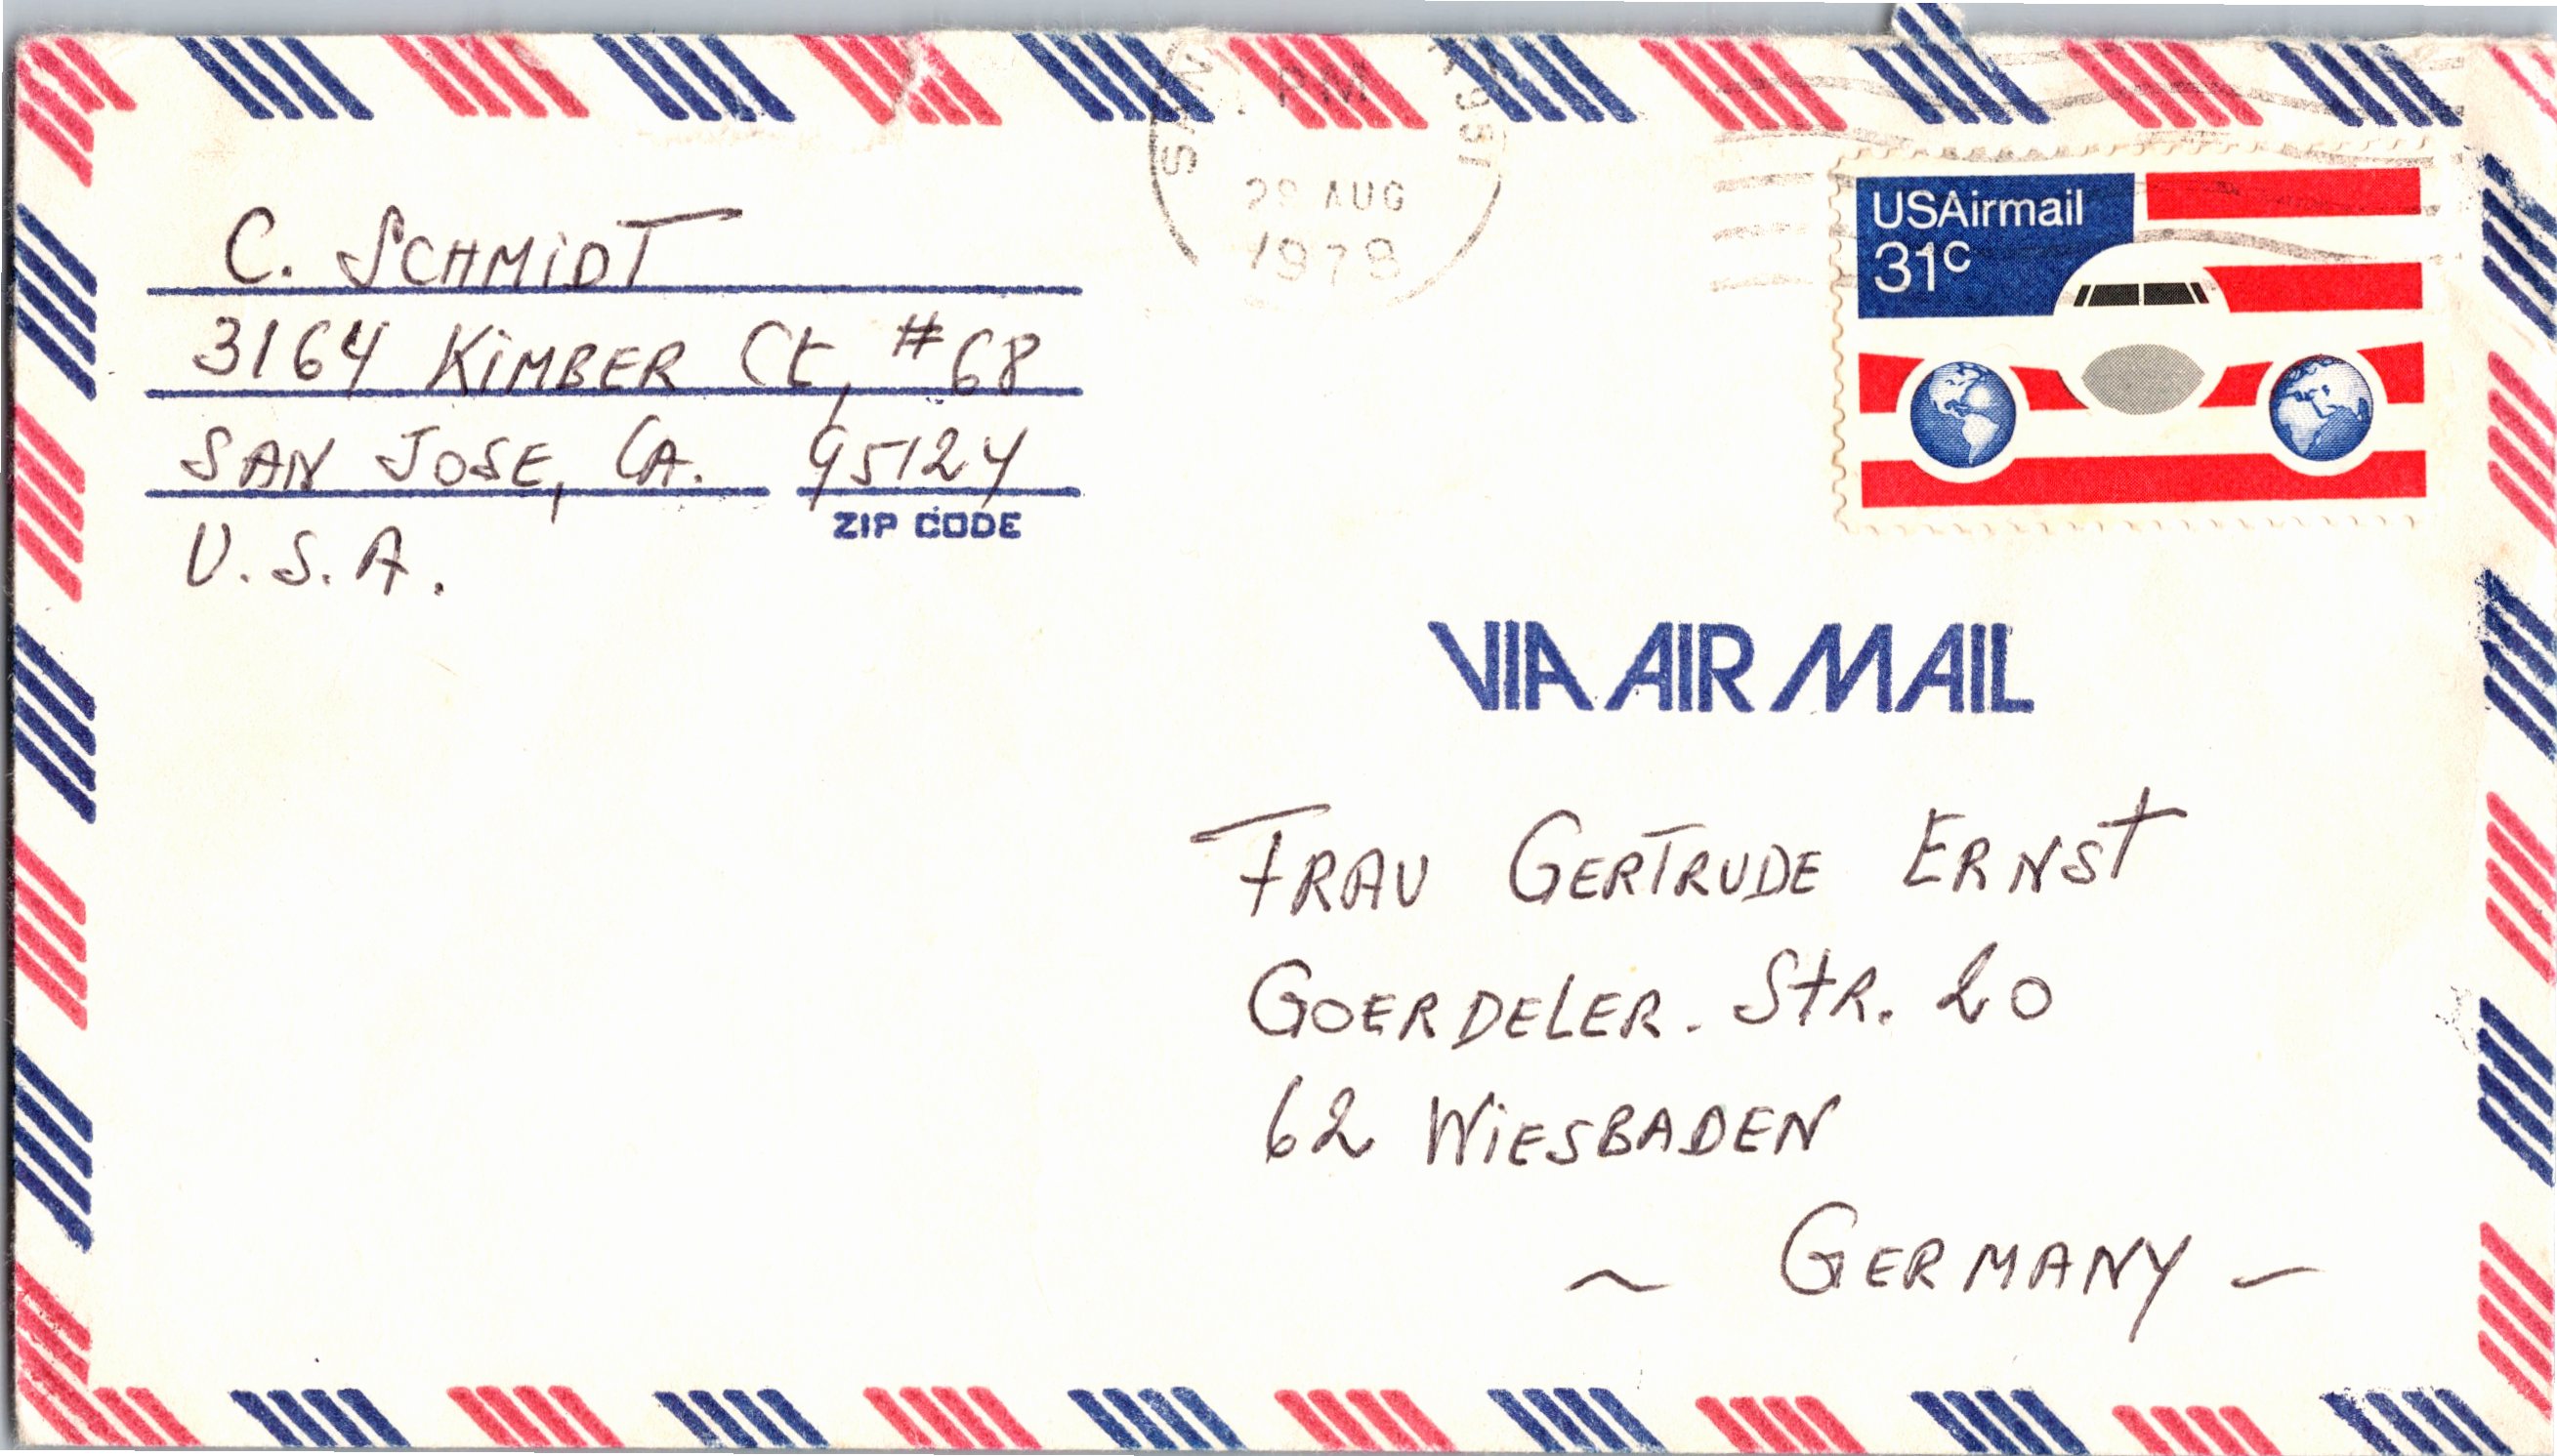 C. SCHMIDT
3164 KIMBER Ct, #68
SAN JOSE, CA. 95124
ZIP CODE
U.S.A.
PM
AUG
1978
USAirmail
31c
VIA AIR MAIL
FRAU GERTRUDE ERNST
GOERDELER. STR. 20
62 WIESBADEN
~ GERMANY ~